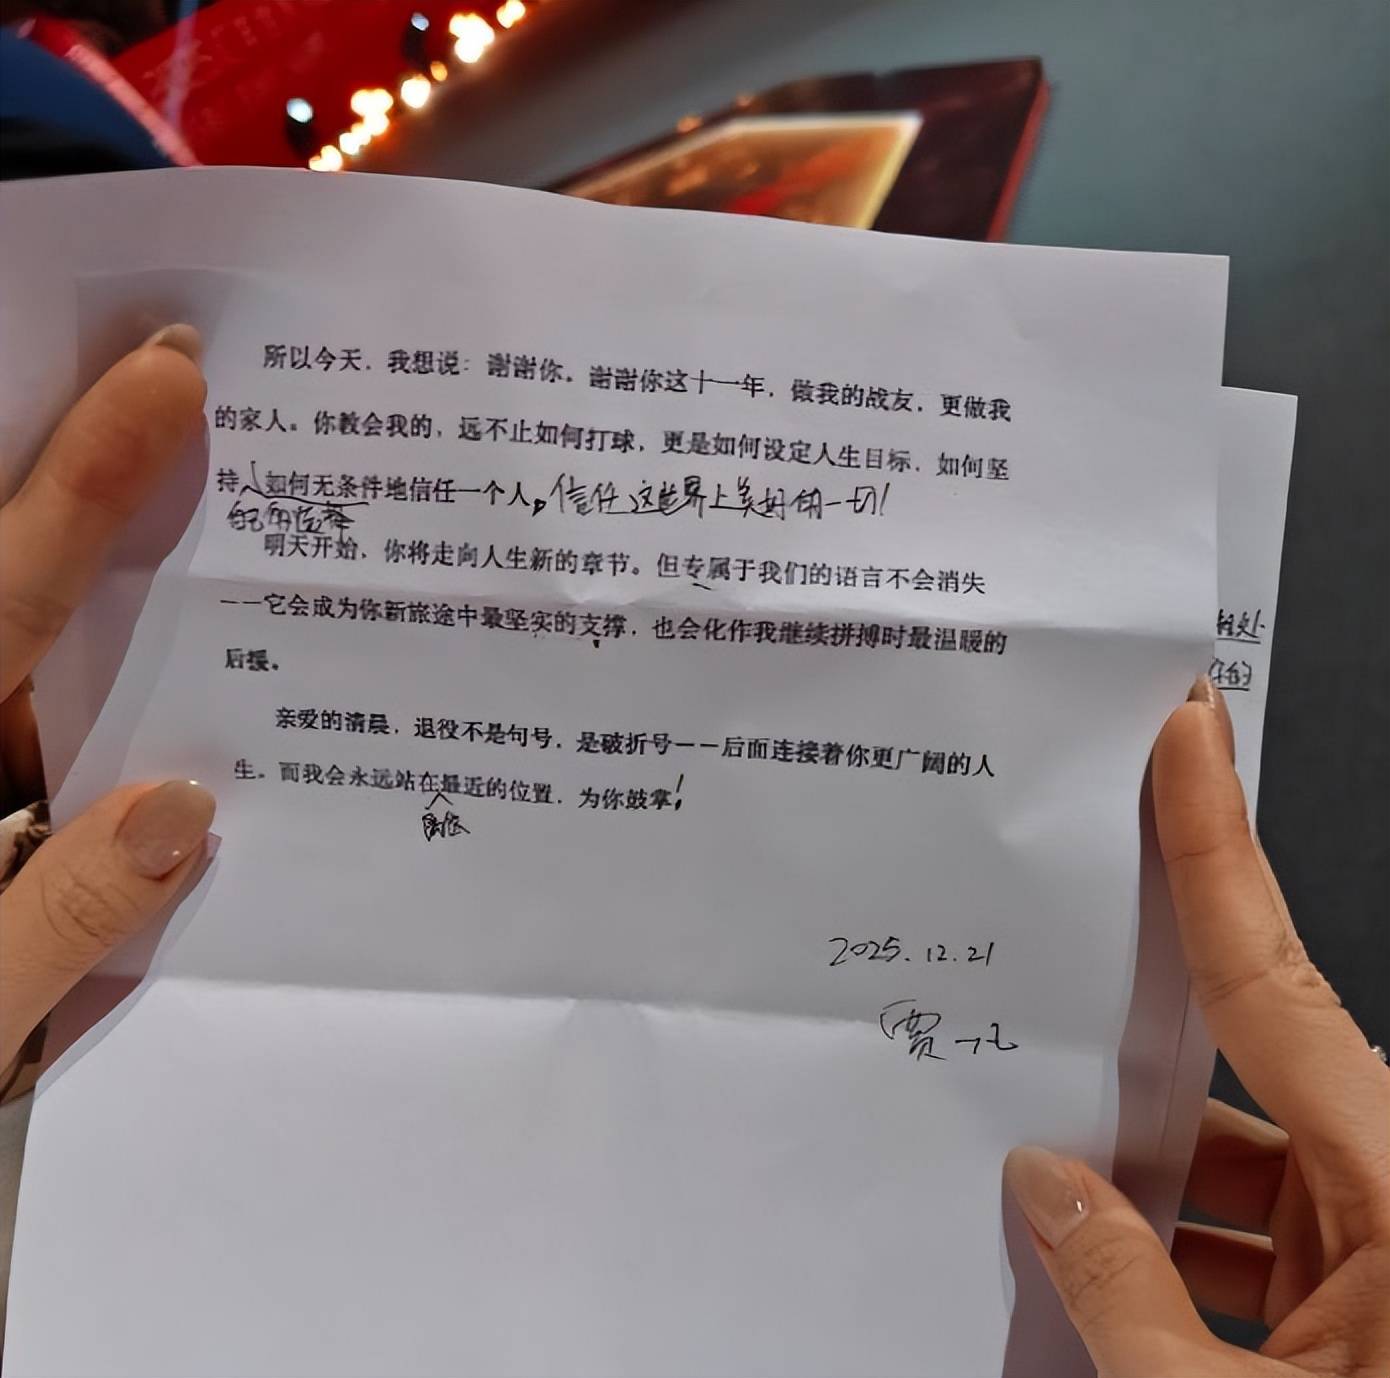 所以今天，我想说：谢谢你。谢谢你这十一年，做我的战友，更做我
的家人。你教会我的，远不止如何打球，更是如何设定人生目标，如何坚
持 如何无条件地信任一个人。信任这世界上美好的一切！
自己的选择
明天开始，你将走向人生新的章节。但专属于我们的语言不会消失
——它会成为你新旅途中最坚实的支撑，也会化作我继续拼搏时最温暖的
后援。
亲爱的清晨，退役不是句号，是破折号——后面连接着你更广阔的人
生。而我会永远站在最近的位置，为你鼓掌！
离你
2025.12.21
贾一凡
相处